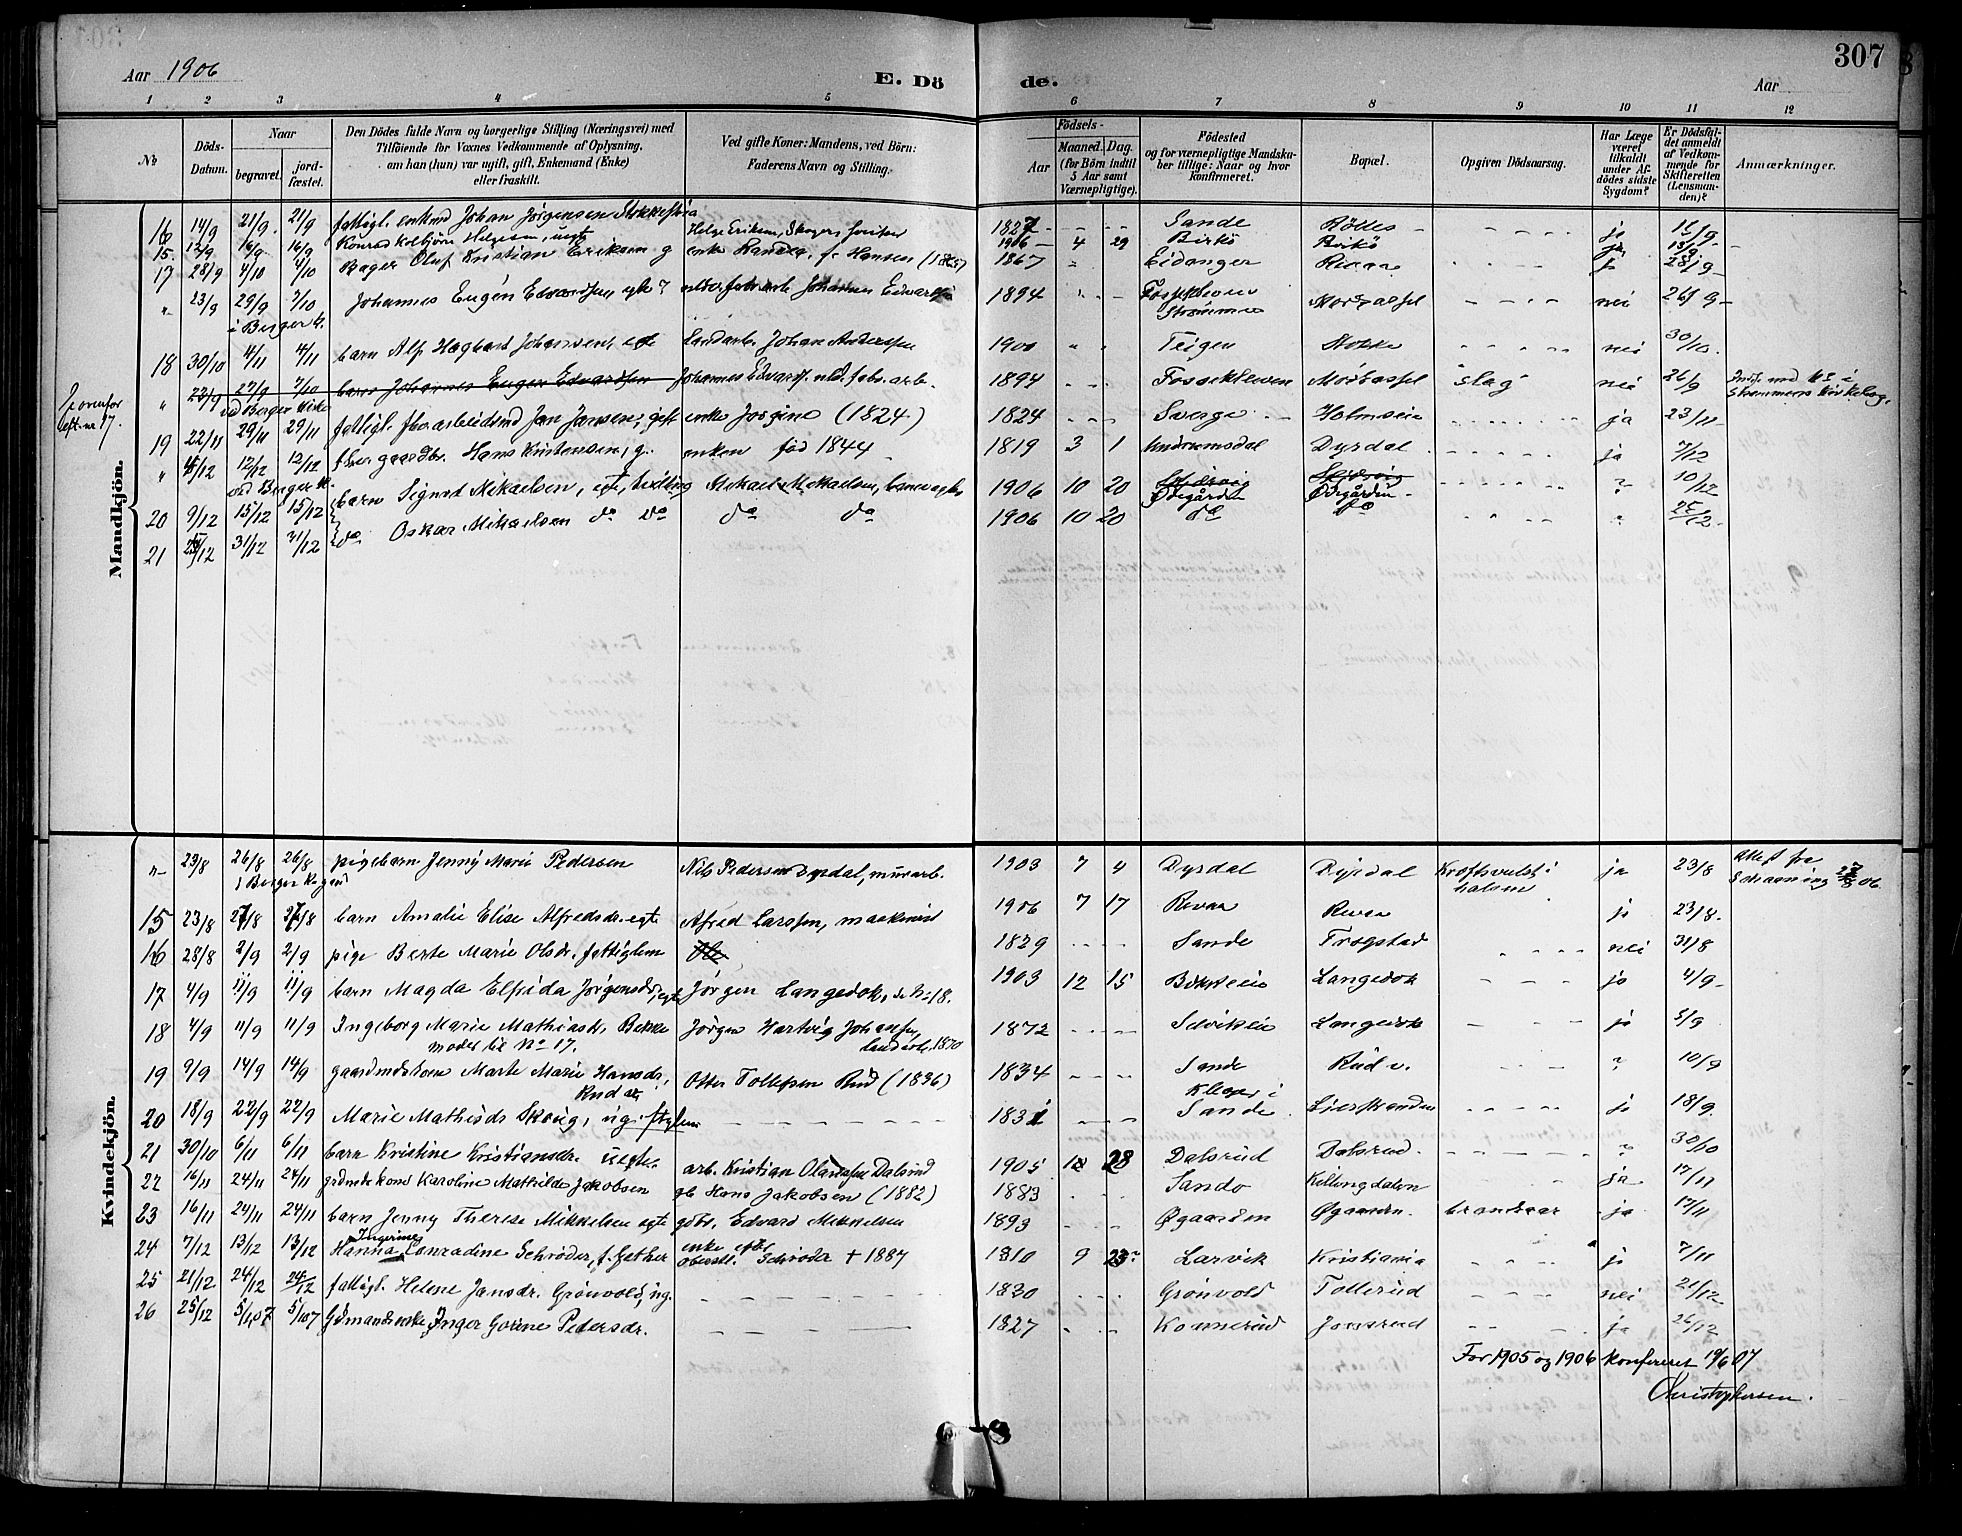 307
Aar 1906 E. Dö de. Aar
1 2 3 4 5 6 7 8 9 10 11 12
No Döds-Datum. Naar begravet. jord-fæstet. Den Dödes fulde Navn og borgerlige Stilling (Næringsvei) med Tilföiende for Voxnes Vedkommende af Oplysning, om han (hun) var ugift, gift, Enkemand (Enke) eller fraskilt. Ved gifte Koner: Mandens, ved Börn: Faderens Navn og Stilling. Födsels- Aar Maaned. Dag. (for Börn indtil 5 Aar samt Værnepligtige). Födested og for værnepligtige Mandskaber tillige: Naar og hvor konfirmeret. Bopæl. Opgiven Dödsaarsag. Har Læge været tilkaldt under Afdödes sidste Sygdom? Er Dödsfaldet anmeldt af Vedkommende for Skifteretten (Lensmanden)? Anmærkninger.
Mandkjön.
16 14/9 21/9 21/9 fattigl. enkmd Johan Jörgensen 1827 Sande ja 15/9
15 12/9 16/9 16/9 Konrad Kolbjörn Helgesen, uegte Helge Eriksen, Skoger 1906 4 29 Birkö Birkö ja 13/9
17 28/9 4/10 4/10 Bager Oluf Kristian Eriksen g enke Randea f. Hansen (1865) 1867 Eidanger Revaa ja 28/9
" 23/9 29/9 7/10 Johannes Eugén Edvardsen, egte uldfabrarb Johannes Edvardsen 1894 Fossekleven Strømmen nei 26/9
i Berger k.
18 30/10 4/11 4/11 barn Alf Hagbart Johansen egte Landarb. Johan Anderssen 1900 Teigen Stokke nei 30/10
" 23/9 29/9 7/10 barn Johannes Eugen Edvardsen Johannes Edvards. uld. fabr. arb. 1894 Fossekleven slag nei 26/9 Indf. med No i Strømmens Kirkebog.
Se ovenfor eft. nr 17.
ved Berger Kirke
19 22/11 29/11 29/11 fattigl. fhv arbeidsmd Jan Jansen, gift enke Jorgine (1824) 1824 Sverge ja 23/11
" 4/12 12/12 12/12 fhv. gaardbr. Hans Kristensen, g. enken fød 1844 1819 3 1 Dyrdal ja 7/12
ved Berger K.
20 9/12 15/12 15/12 barn Sigurd Mikaelsen, egte, tvilling Mikael Mikkelsen, 1906 10 20 Ødegården Ødegården ? 10/12
21 25/12 31/12 31/12 do Oskar Mikaelsen do do do do 1906 10 20 do do 25/12
Kvindekjön.
" 23/8 26/8 26/8 pigebarn Jenny Marie Pedersen Nils Pedersen Dyrdal, murarb. 1903 7 4 Dyrdal Dyrdal Kræftsvulst i halsen ja 23/8 Attest fra
15 23/8 27/8 27/8 barn Amalie Elise Alfredsdr. egte Alfred Larssen, maskinist 1906 7 17 Revaa Revaa ja 23/8
16 28/8 2/9 2/9 pige Berte Marie Olsdr. fattiglem 1829 Sande Trogstad nei 31/8
17 4/9 11/9 11/9 barn Magda Elfrida Jørgensdr, egte Jörgen Langedok, se No 18. 1903 12 15 Langedok ja 4/9
18 4/9 11/9 11/9 Ingeborg Marie Mathiasdr. Bekke Jörgen Hartvig Johansen, landarb. 1870 1872 Langedok ja 5/9
moder til No 17.
19 9/9 14/9 14/9 gaardmdskone Marte Marie Hansdr, Rud Otter Tollefsen Rud (1836) 1834 Sande Rud v. ? 10/9
20 18/9 22/9 22/9 Marie Mathisdr Skoug, ug. 1831 Klever i Sande Lierskanden ja 18/9
21 30/10 6/11 6/11 barn Kristine Kristiansdr. uegte arb. Kristian Olavessen Dalsrud 1905 12 28 Dalsrud Dalsrud ? 30/10
22 16/11 24/11 24/11 grdmdskone Karoline Mathilde Jakobsen gb Hans Jakobsen (1882) 1883 Sande Killingdalen ja 17/11
23 16/11 24/11 24/11 barn Jenny Therese Mikkelsen egte gdbr. Edvard Mikkelsen 1893 Øgaarden Øgaarden brandsaar ja 17/11
24 7/12 13/12 13/12 Hanna Ingerine Conradine Schrøder, f. Esther enke efter oberstl. Schrøder + 1887 1810 9 23 Larvik Kristiania ja 7/11
25 21/12 24/12 24/12 fattigl. Helene Jansdr. Grönvold, ug. 1830 Grønvold Tollerud nei 21/12
26 25/12 5/1.07 5/107 Grdmandsenke Inger Gorine Pedersdr. 1827 Konnerud Jonsrud ja 26/12
For 1905 og 1906 konfereret 19/6 07
Christophersen.